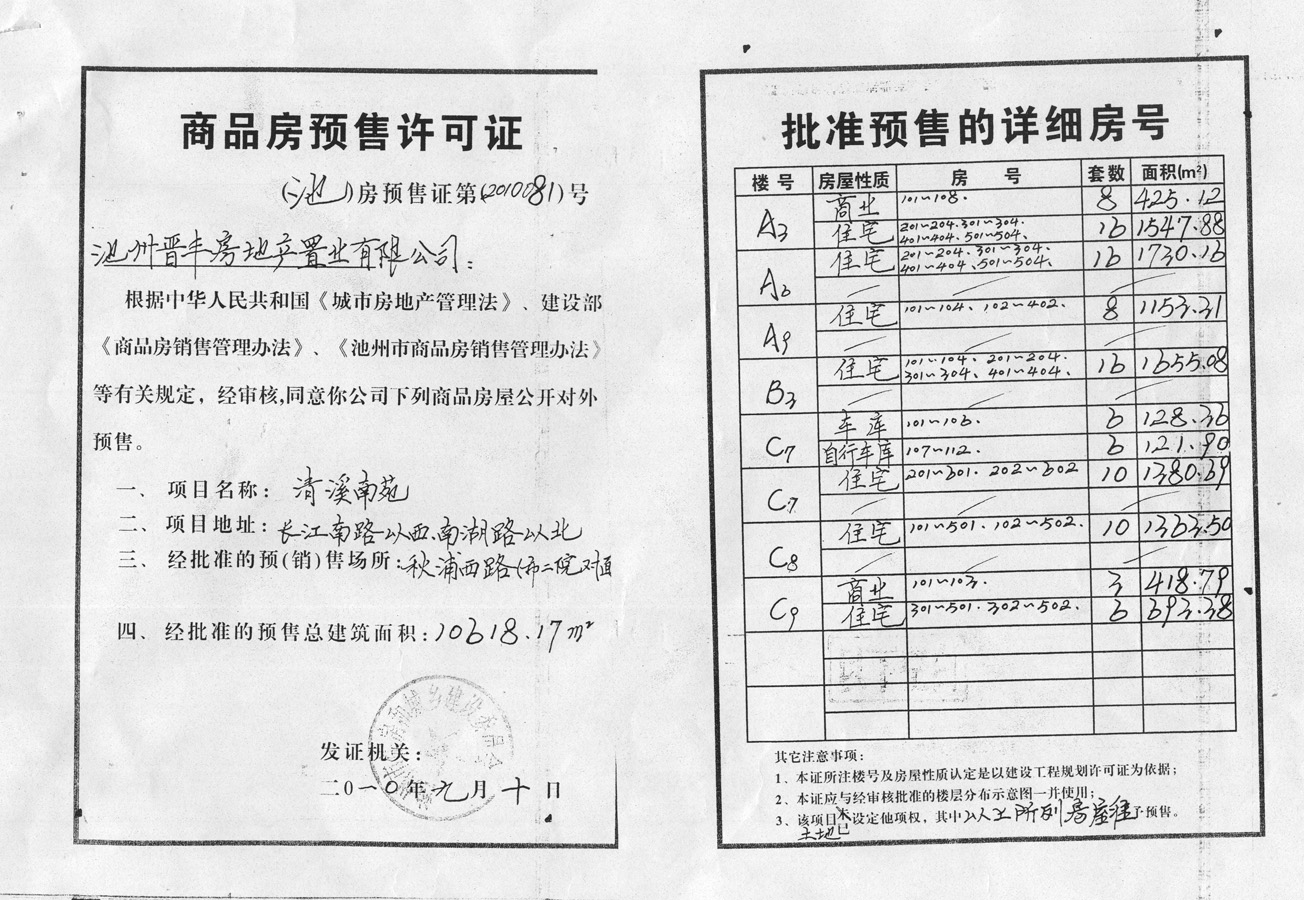 商品房预售许可证
(池)房预售证第(2010081)号
池州晋丰房地产置业有限公司:
根据中华人民共和国《城市房地产管理法》、建设部
《商品房销售管理办法》、《池州市商品房销售管理办法》
等有关规定，经审核,同意你公司下列商品房屋公开对外
预售。
一、项目名称:清溪南苑
二、项目地址:长江南路以西、南湖路以北
三、经批准的预(销)售场所:秋浦西路(市二院对面
四、经批准的预售总建筑面积:10618.17m²
发证机关:
二0一0年九月十日
批准预售的详细房号
楼号 房屋性质 房号 套数 面积(m²)
A3 商业 101~108. 8 425.12
住宅 201~204.301~304. 401~404、501~504、 16 1547.88
A6 住宅 201~204、301~304、 401~404、501~504、 16 1730.16
A9 住宅 101~104、102~402. 8 1153.31
B3 住宅 101~104、201~204. 301~304、401~404、 16 1655.08
C7 车库 101~106. 6 128.36
自行车库 107~112. 6 121.90
C7 住宅 201~601.202~602 10 1380.69
C8 住宅 101~501.102~502. 10 1363.50
C9 商业 101~103. 3 418.79
住宅 301~501.302~502. 6 693.38
其它注意事项:
1、本证所注楼号及房屋性质认定是以建设工程规划许可证为依据;
2、本证应与经审核批准的楼层分布示意图一并使用;
3、该项目未设定他项权，其中以上所列房屋准予预售。
土地已